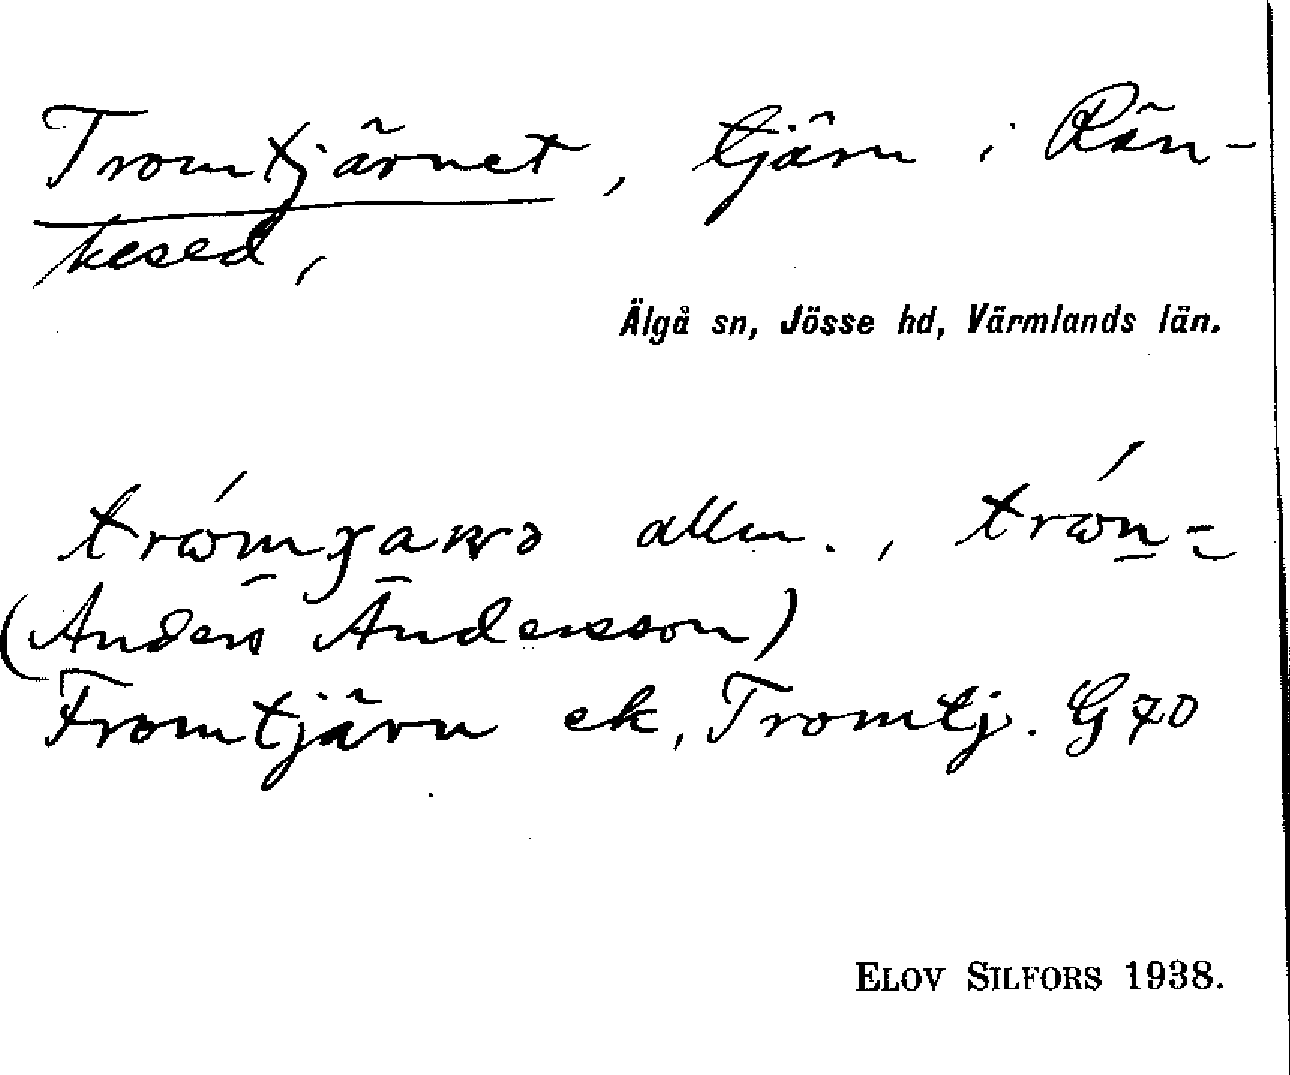 Tromtjärnet, tjärn i Rän-
kesed,
Älgå sn, Jösse hd, Värmlands län.
allm.,
(Anders Andersson)
Fromtjärn ek, Tromtj. G70
ELOV SILFORS 1938.